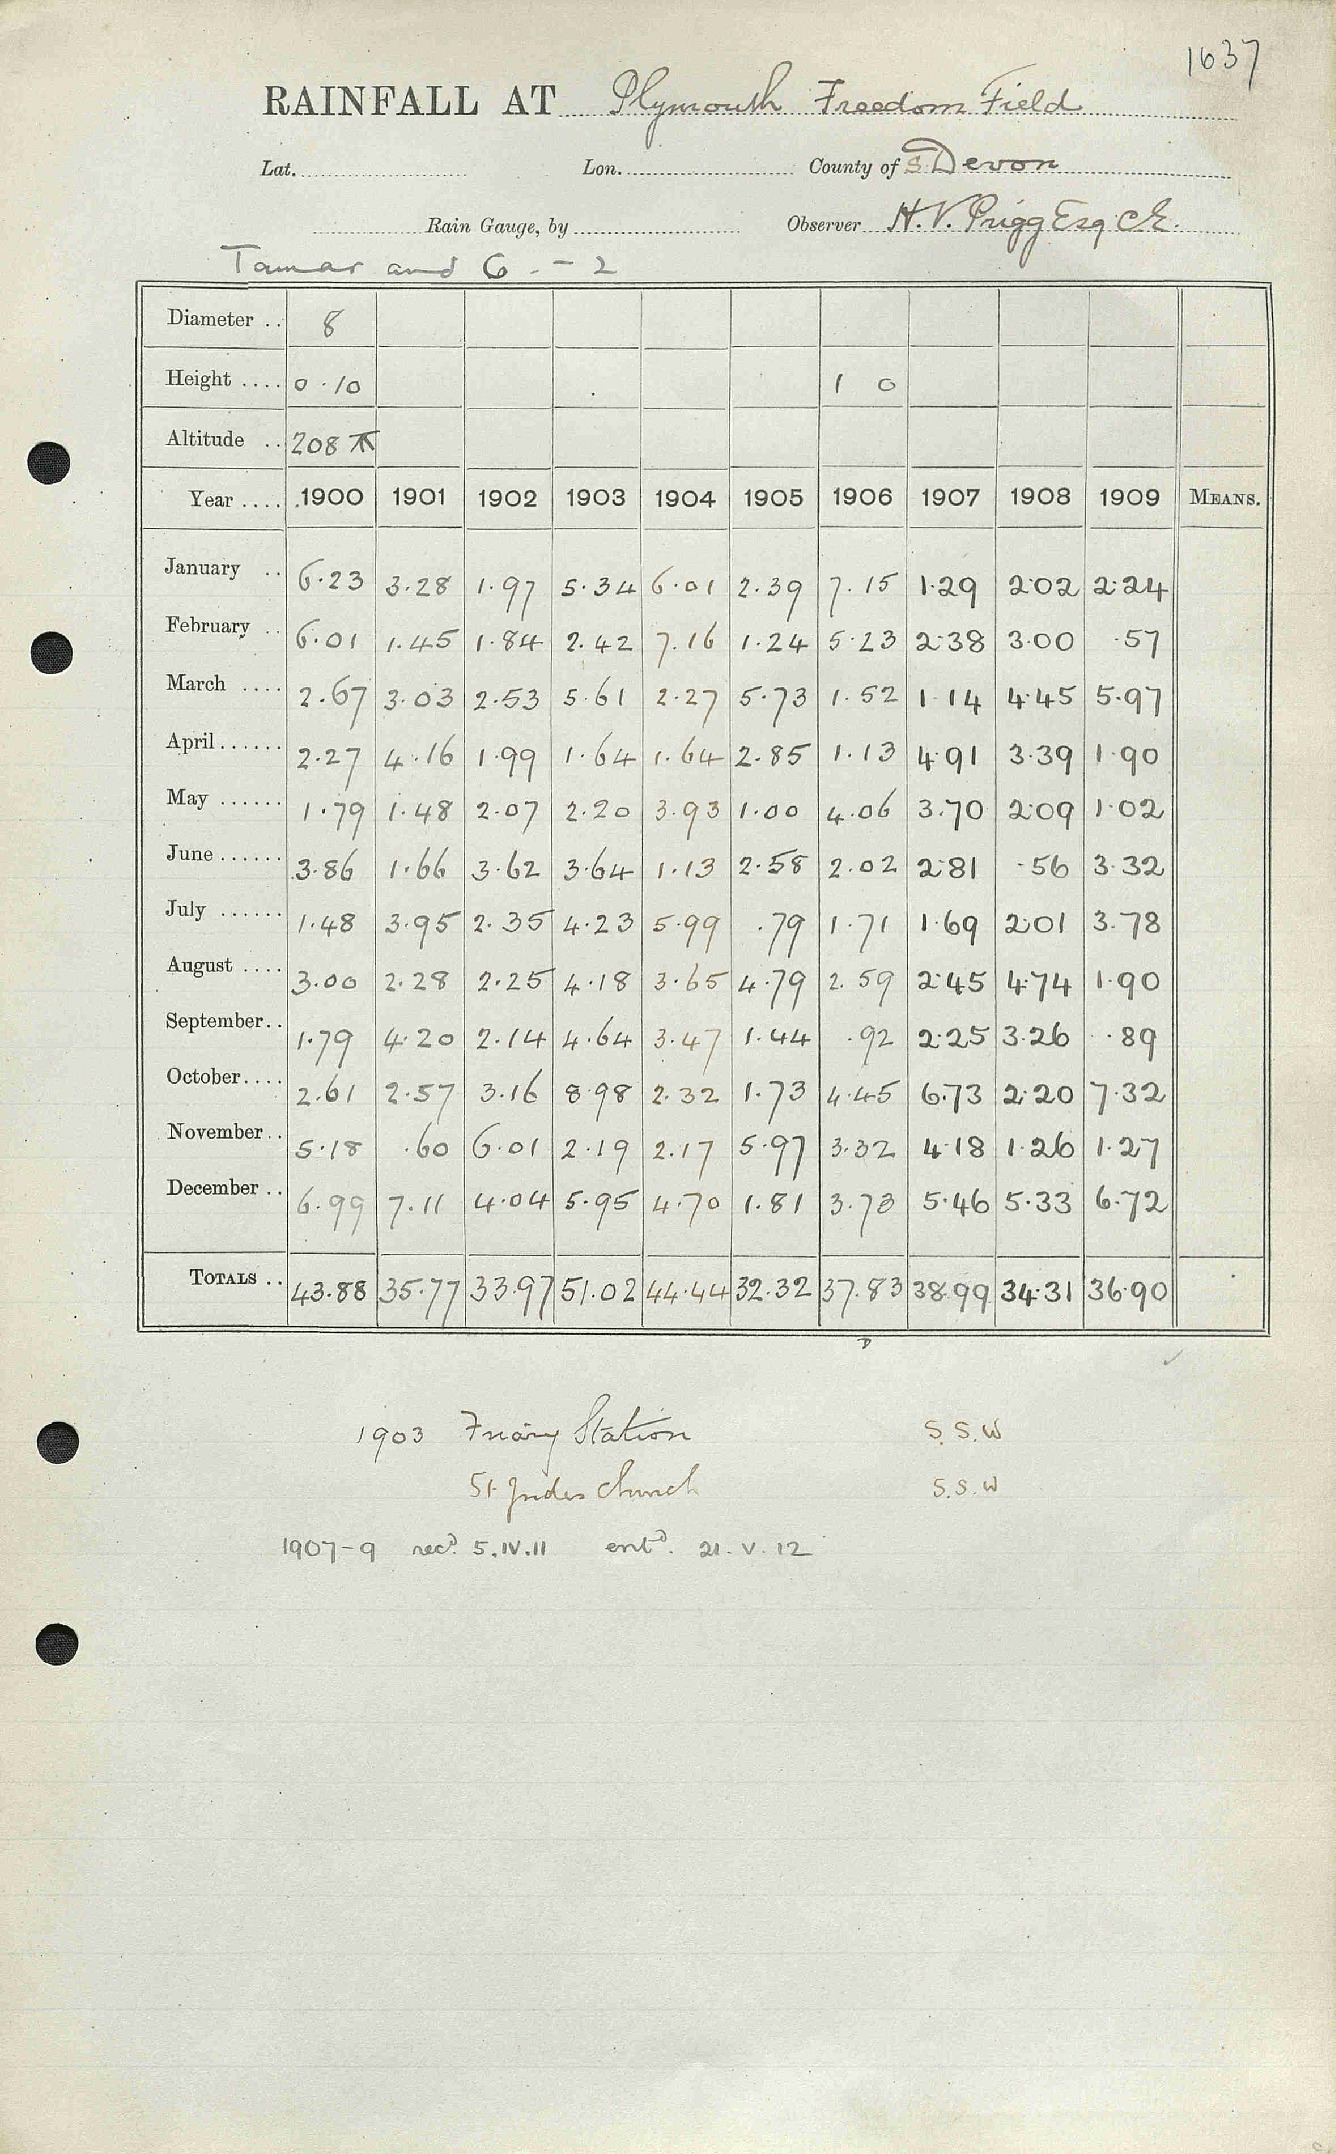 1637
RAINFALL AT Plymouth Freedom Field
Lat. Lon. County of S. Devon
Rain Gauge, by Observer H. V. Prigg Esq. C.E.
Tamar and 6 . - 2
Diameter .. 8
Height .... 0.10 1 0
Altitude .. 208
Year .... 1900 1901 1902 1903 1904 1905 1906 1907 1908 1909 MEANS.
January .. 6.23 3.28 1.97 5.34 6.01 2.39 7.15 1.29 2.02 2.24
February .. 6.01 1.45 1.84 2.42 7.16 1.24 5.23 2.38 3.00 .57
March .... 2.67 3.03 2.53 5.61 2.27 5.73 1.52 1.14 4.45 5.97
April ...... 2.27 4.16 1.99 1.64 1.64 2.85 1.13 4.91 3.39 1.90
May ...... 1.79 1.48 2.07 2.20 3.93 1.00 4.06 3.70 2.09 1.02
June ...... 3.86 1.66 3.62 3.64 1.13 2.58 2.02 2.81 .56 3.32
July ...... 1.48 3.95 2.35 4.23 5.99 .79 1.71 1.69 2.01 3.78
August .... 3.00 2.28 2.25 4.18 3.65 4.79 2.59 2.45 4.74 1.90
September .. 1.79 4.20 2.14 4.64 3.47 1.44 .92 2.25 3.26 .89
October .... 2.61 2.57 3.16 8.98 2.32 1.73 4.45 6.73 2.20 7.32
November .. 5.18 .60 6.01 2.19 2.17 5.97 3.32 4.18 1.26 1.27
December .. 6.99 7.11 4.04 5.95 4.70 1.81 3.73 5.46 5.33 6.72
TOTALS .. 43.88 35.77 33.97 51.02 44.44 32.32 37.83 38.99 34.31 36.90
1903 Friary Station S.S.W
St Judes Church S.S.W
1907-9 recd. 5.IV.11 entd. 21.V.12